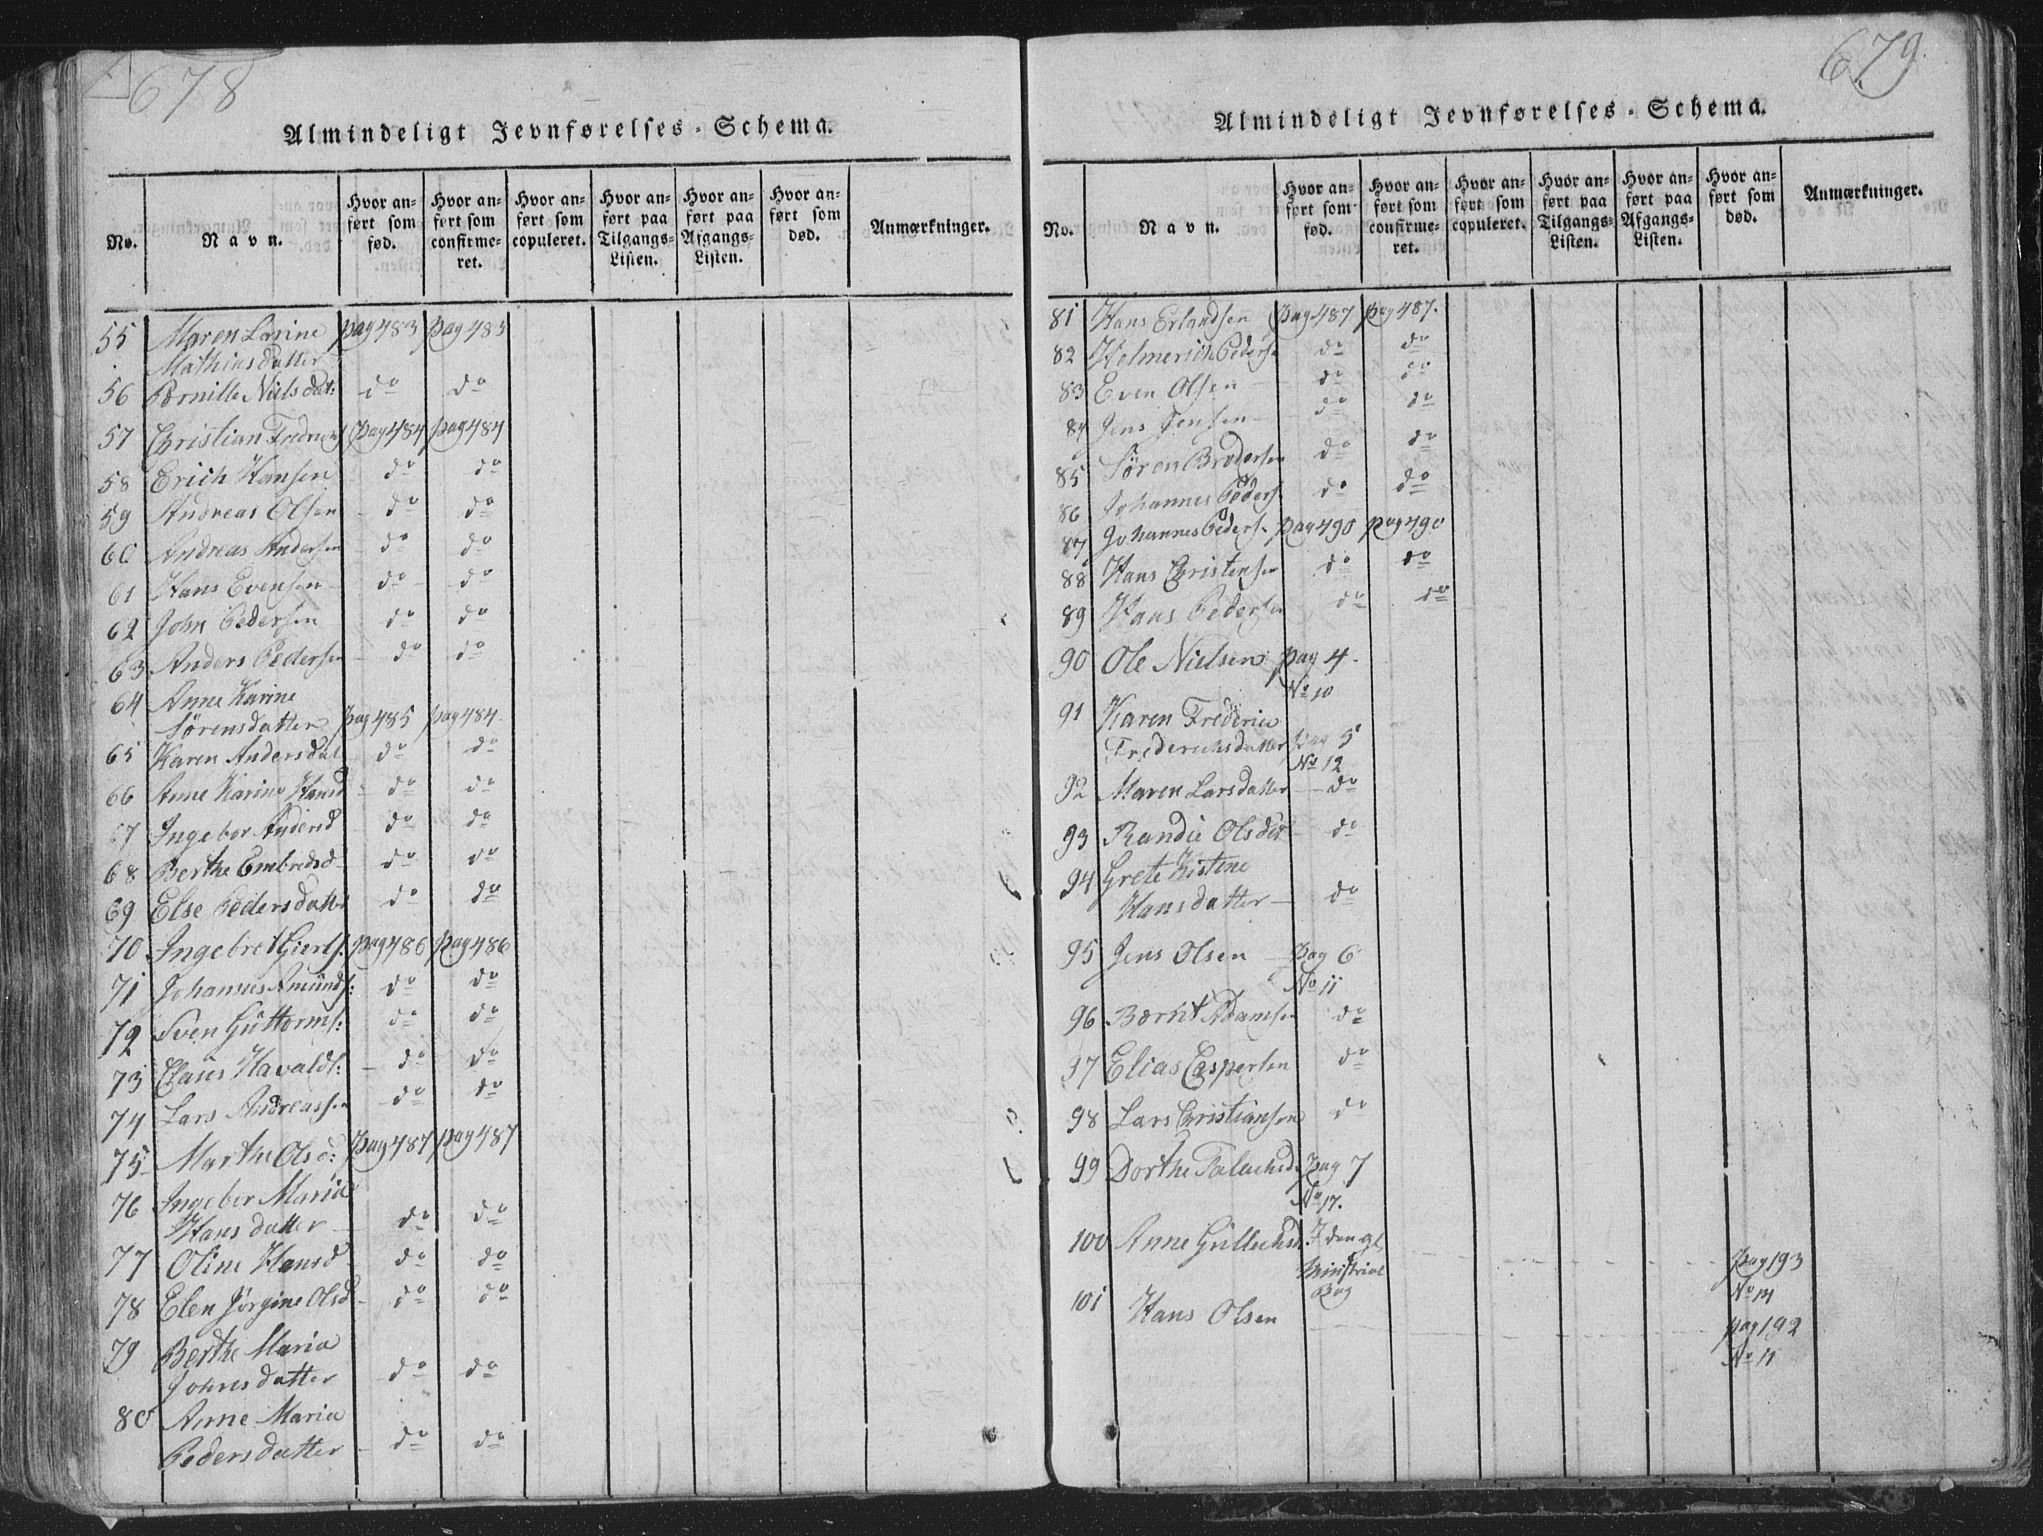 678
Almindeligt Jevnførelses-Schema.
No. Navn. Hvor anført som fød. Hvor anført som confirmeret. Hvor anført som copuleret. Hvor anført paa Tilgangs-Listen. Hvor anført paa Afgangs-Listen. Hvor anført som død. Anmærkninger.
55 Maren Larine pag 483 pag 483
Mathiasdatter
56 Pernille Niels dat: do do
57 Christian Fredrichs pag 484 pag 484
58 Erich Hansen do do
59 Andreas Olsen do do
60 Andreas Andersen do do
61 Hans Evensen do do
62 John Pedersen do do
63 Anders Pedersen do do
64 Anne Karine
Sørensdatter pag 485 pag 484
65 Karen Andersdat do do
66 Anne Karine Hansd do do
67 Ingebor Andersd do do
68 Berthe Embredsd do do
69 Else Pedersdatter do do
70 Ingebret Gierts: pag 486 pag 486
71 Johannes Amunds: do do
72 Sven Guttorms: do do
73 Claus Havalds: do do
74 Lars Andreassen do do
75 Marthe Olsd: pag 487 pag 487
76 Ingebor Maria
Hansdatter do do
77 Oline Hansd do do
78 Elen Jørgine Olsd do do
79 Berthe Maria
Johnsdatter do do
80 Anne Maria
Pedersdatter do do
679
Almindeligt Jevnførelses-Schema.
No. Navn. Hvor anført som fød. Hvor anført som confirmeret. Hvor anført som copuleret. Hvor anført paa Tilgangs-Listen. Hvor anført paa Afgangs-Listen. Hvor anført som død. Anmærkninger.
81 Hans Erlandsen pag 487 pag 487.
82 Helmerich Peders do do
83 Even Olsen do do
84 Jens Jensen do do
85 Søren Brodersen do do
86 Johannes Peders. do do
87 Johannes Peders. pag 490 pag 490
88 Hans Christensen do do
89 Hans Pedersen do do
90 Ole Nielsen pag 4
No 10
91 Karen Frederica
Frederichsdatter pag 5
No 12
92 Maren Larsdatter do
93 Randie Olsdat do
94 Grete Kistene
Hansdatter do
95 Jens Olsen pag 6
No 11
96 Bernt Adamsen do
97 Elias Espersen do
98 Lars Christiansen do
99 Dorthe Falachsd. pag 7
No 17.
100 Anne Gullachsd. I den gl. pag 193
Ministrial No 14
Bog
101 Hans Olsen pag 192
No 11